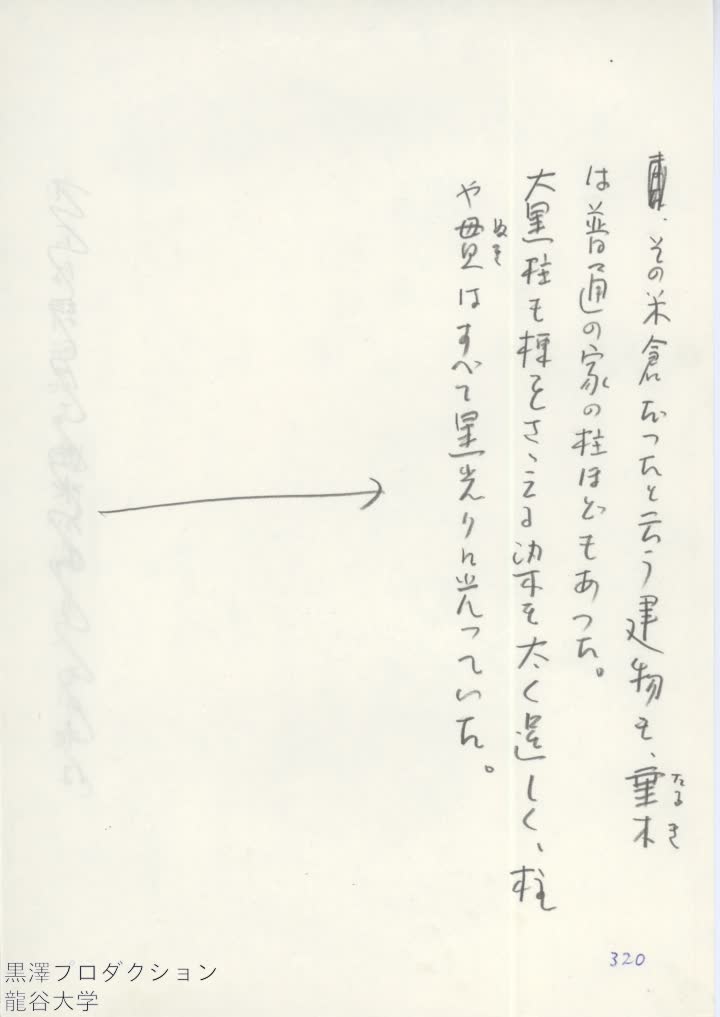 その米倉だったと云う建物も、垂木
たるき
は普通の家の柱ほどもあった。
大黒柱も棟をさゝえる梁も太く逞しく、柱
や貫はすべて黒光りに光っていた。
ぬき
320
黒澤プロダクション
龍谷大学